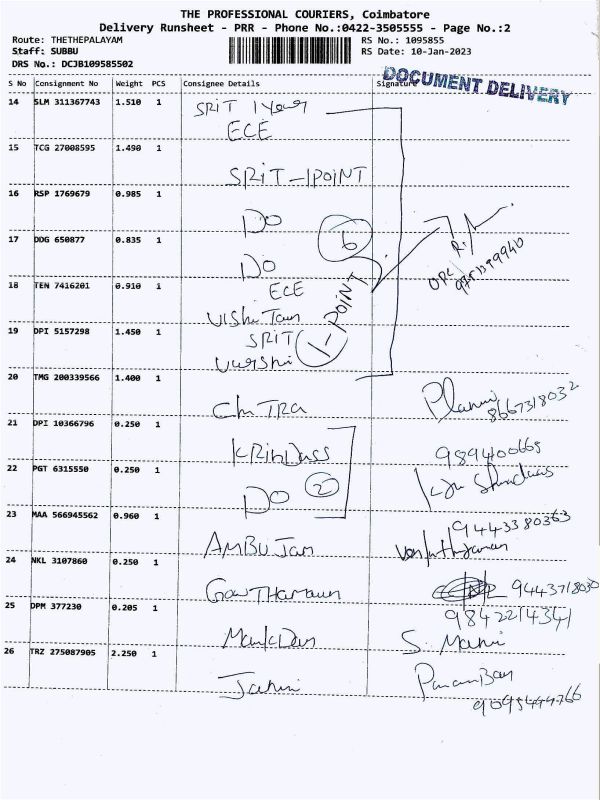 THE PROFESSIONAL COURIERS, Coimbatore
Delivery Runsheet - PRR - Phone No.:0422-3505555 - Page No.:2
Route: THETHEPALAYAM
RS No.: 1095855
Staff: SUBBU
RS Date: 10-Jan-2023
DRS No.: DCJB109585502
DOCUMENT DELIVERY
S No Consignment No Weight PCS Consignee Details Signature
14 SLM 311367743 1.510 1 SRIT 1 Year
ECE
15 TCG 27008595 1.490 1
SRIT - 1POINT
16 RSP 1769679 0.985 1
DO
6
17 DDG 650877 0.835 1
DO
18 TEN 7416201 0.910 1
ECE
1-POINT
19 DPI 5157298 1.450 1
SRIT
20 TMG 200339566 1.400 1
8667318032
21 DPI 10366796 0.250 1
22 PGT 6315550 0.250 1
DO 2
23 MAA 566945562 0.960 1
9443380363
AMBUJam
24 NKL 3107860 0.250 1
9443718030
25 DPM 377230 0.205 1
9842214341
26 TRZ 275087905 2.250 1